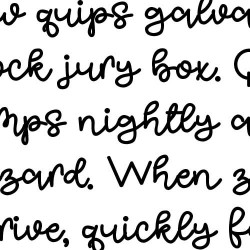 w quips galva
ock jury box. Q
mps nightly a
zard. When z
rive, quickly f